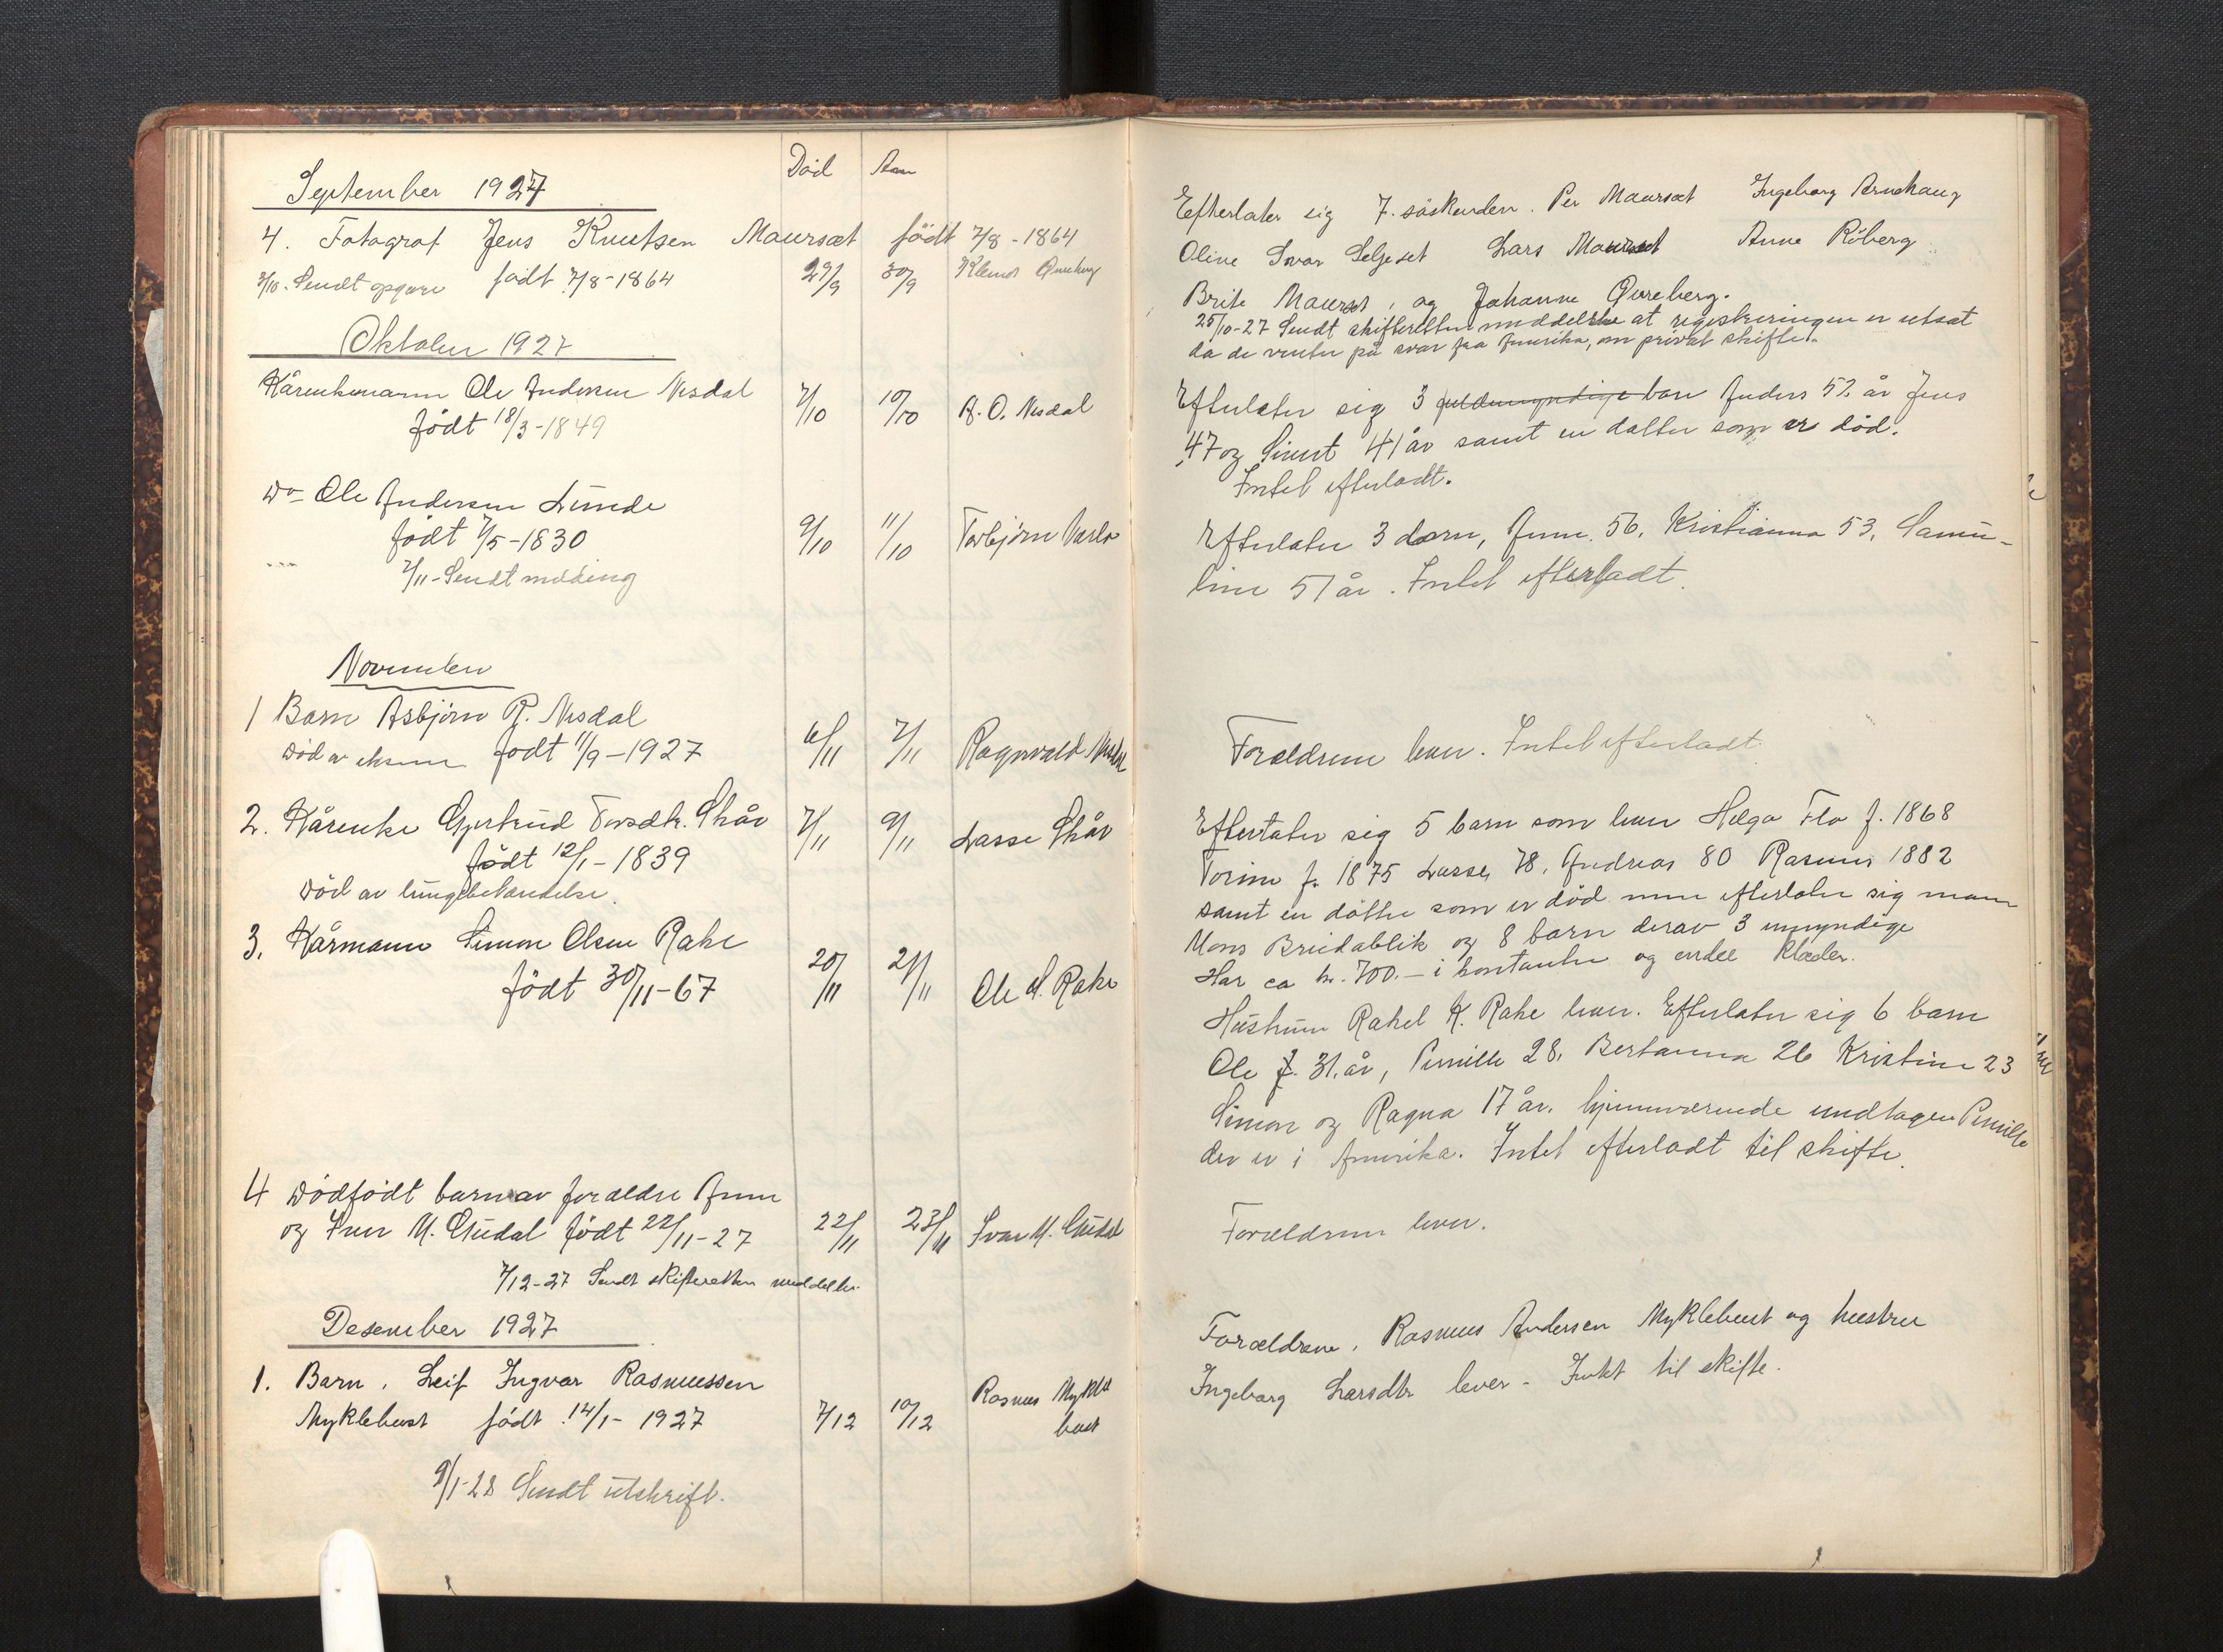 Död Anm
September 1927
4. Fotograf Jens Knutsen Maurset födt 7/8-1864
3/10. Sendt opgave födt 7/8-1864 29/9 30/9 Klaus Qvreberg
Oktober 1927
Kårenkemann Ole Andersen Nesdal 7/10 10/10 A. O. Nesdal
födt 18/3-1849
do- Ole Andersen Lunde
födt 7/5-1830 9/10 11/10 Torbjørn
7/11-Sendt melding
November
1 Barn Asbjørn R. Nesdal 6/11 7/11 Ragnvald Nesdal
död av födt 11/9-1927
2. Kårenke Gjertrud Torsdtr. Skår 7/11 9/11 Lasse Skår
födt 12/1-1839
Död av lungebetændelse.
3. Kårmann Simon Olsen Rake 20/11 21/11 Ole S. Rake
födt 30/11-67
4 Dödfödt barn av foreldre Anne
og Iver M. Gudal födt 22/11-27 22/11 23/11 Ivar M. Gudal
7/12-27 Sendt skifteretten meddelse.
Desember 1927
1. Barn. Leif Ingvar Rasmussen Rasmus Mykle
Myklebust födt 14/1-1927 7/12 10/12 bust
9/1-28 Sendt utskrift.
Efterlater sig 7. söskender. Per Maurset Ingeborg Bruehaug
Oline Ivar Seljeset Lars Maurset Anne Röberg
Brite Maurset, og Johanne Qvreberg.
25/10-27 Sendt skifteretten meddelelse at registreringen er utsat
da de venter på svar fra Amerika, om privat skifte.
Efterlater sig 3 fuldmyndige barn Anders 52 år Jens
47 og Sivert 41 år samt en datter som er död.
Intet efterladt.
Efterlater 3 barn, Anne 56, Kristianna 53, Samu-
line 51 år. Intet efterladt.
Forældrene lever. Intet efterladt
Efterlater sig 5 barn som lever Helga Flo f. 1868
Torine f. 1875 Lasse, 78, Andreas 80 Rasmus 1882
samt en datter som er död men efterlater sig mann
Mons Breidablik og 8 barn derav 3 umyndige
Har ca kr. 700.- i kontanter og endel klæder.
Hustruen Rakel K. Rake lever. Efterlater sig 6 barn
Ole f. 31. år, Pernille 28, Bertanna 26 Kristine 23
Simon og Ragna 17 år. hjemmværende undtagen Pernille
der er i Amerika. Intet efterladt til skifte.
Forældrene lever.
Forældrene, Rasmus Andersen Myklebust og hustru
Ingeborg Larsdtr lever - Intet til skifte.